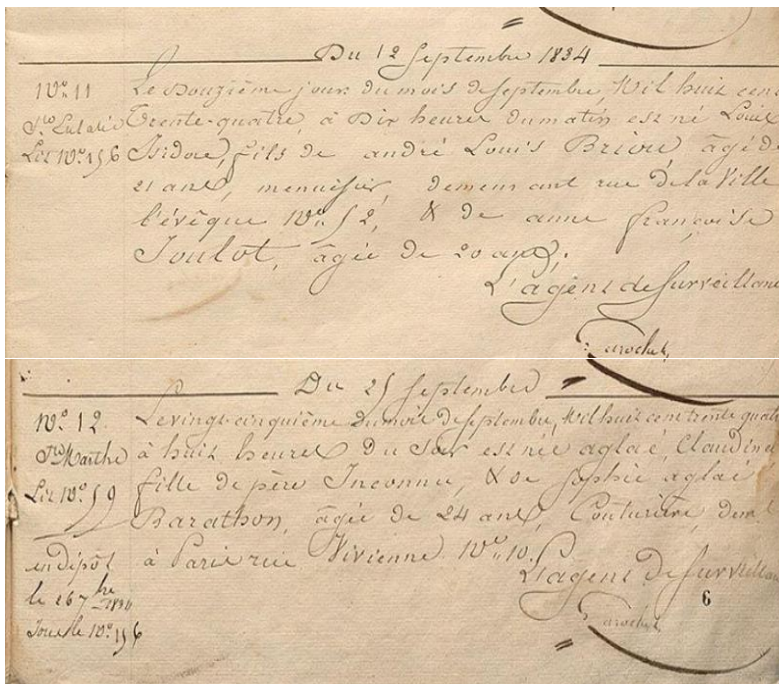 Du 12 Septembre 1834
N.o 11
Ste Eulalie
Lit No. 156
Le Douzième jour du mois de septembre, Mil huit cent
Trente-quatre, à Dix heures du matin est né Louis
Isidore, fils de andré Louis Briere âgé de
21 ans, menuisier, demeurant rue de la Ville
l'évêque No. 52, & de anne françoise
Joulot, âgée de 20 ans.
L'agent de surveillance
Larochet
Du 25 Septembre
No. 12
Ste Marthe
Lit No. 59
en dépôt
le 26 7bre 1834
sous le No. 156
Le vingt-cinquième Du mois De septembre, Mil huit cent trente quatre
à huit heures Du soir est née aglaé, Claudine
fille de père Inconnu, & de Sophie aglaé
Barathon, âgée de 24 ans, Couturière, dem.t
à Paris rue Vivienne No. 10.
L'agent De surveillance
6
Larochet